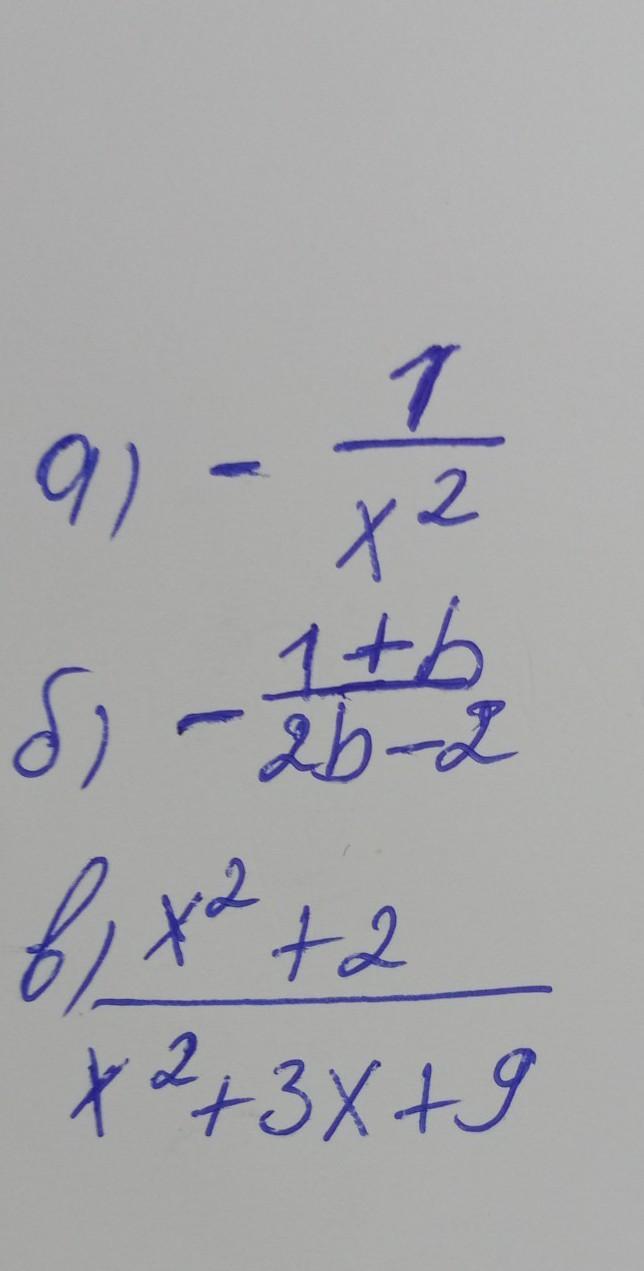 а) - 1/x²
б) - 1+b/2b-2
в) x²+2/x²+3x+9